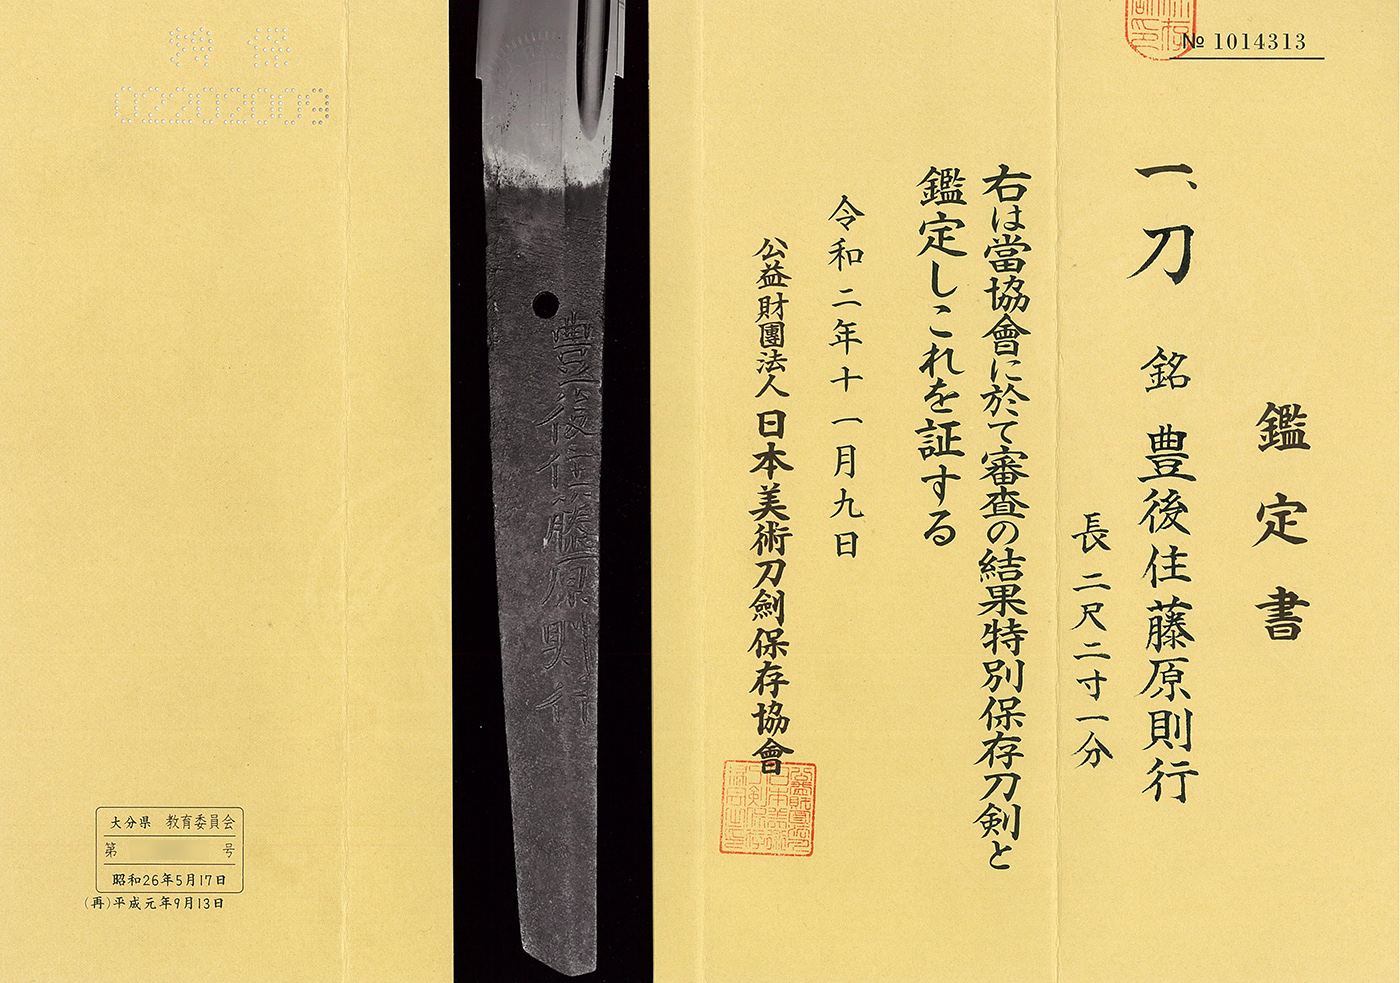 № 1014313
鑑定書
一、刀 銘 豊後住藤原則行
長 二尺二寸一分
右は當協會に於て審査の結果特別保存刀剣と
鑑定しこれを証する
令和二年十一月九日
公益財團法人 日本美術刀劍保存協會
豊後住藤原則行
02202009
大分県 教育委員会
第 号
昭和26年5月17日
(再)平成元年9月13日